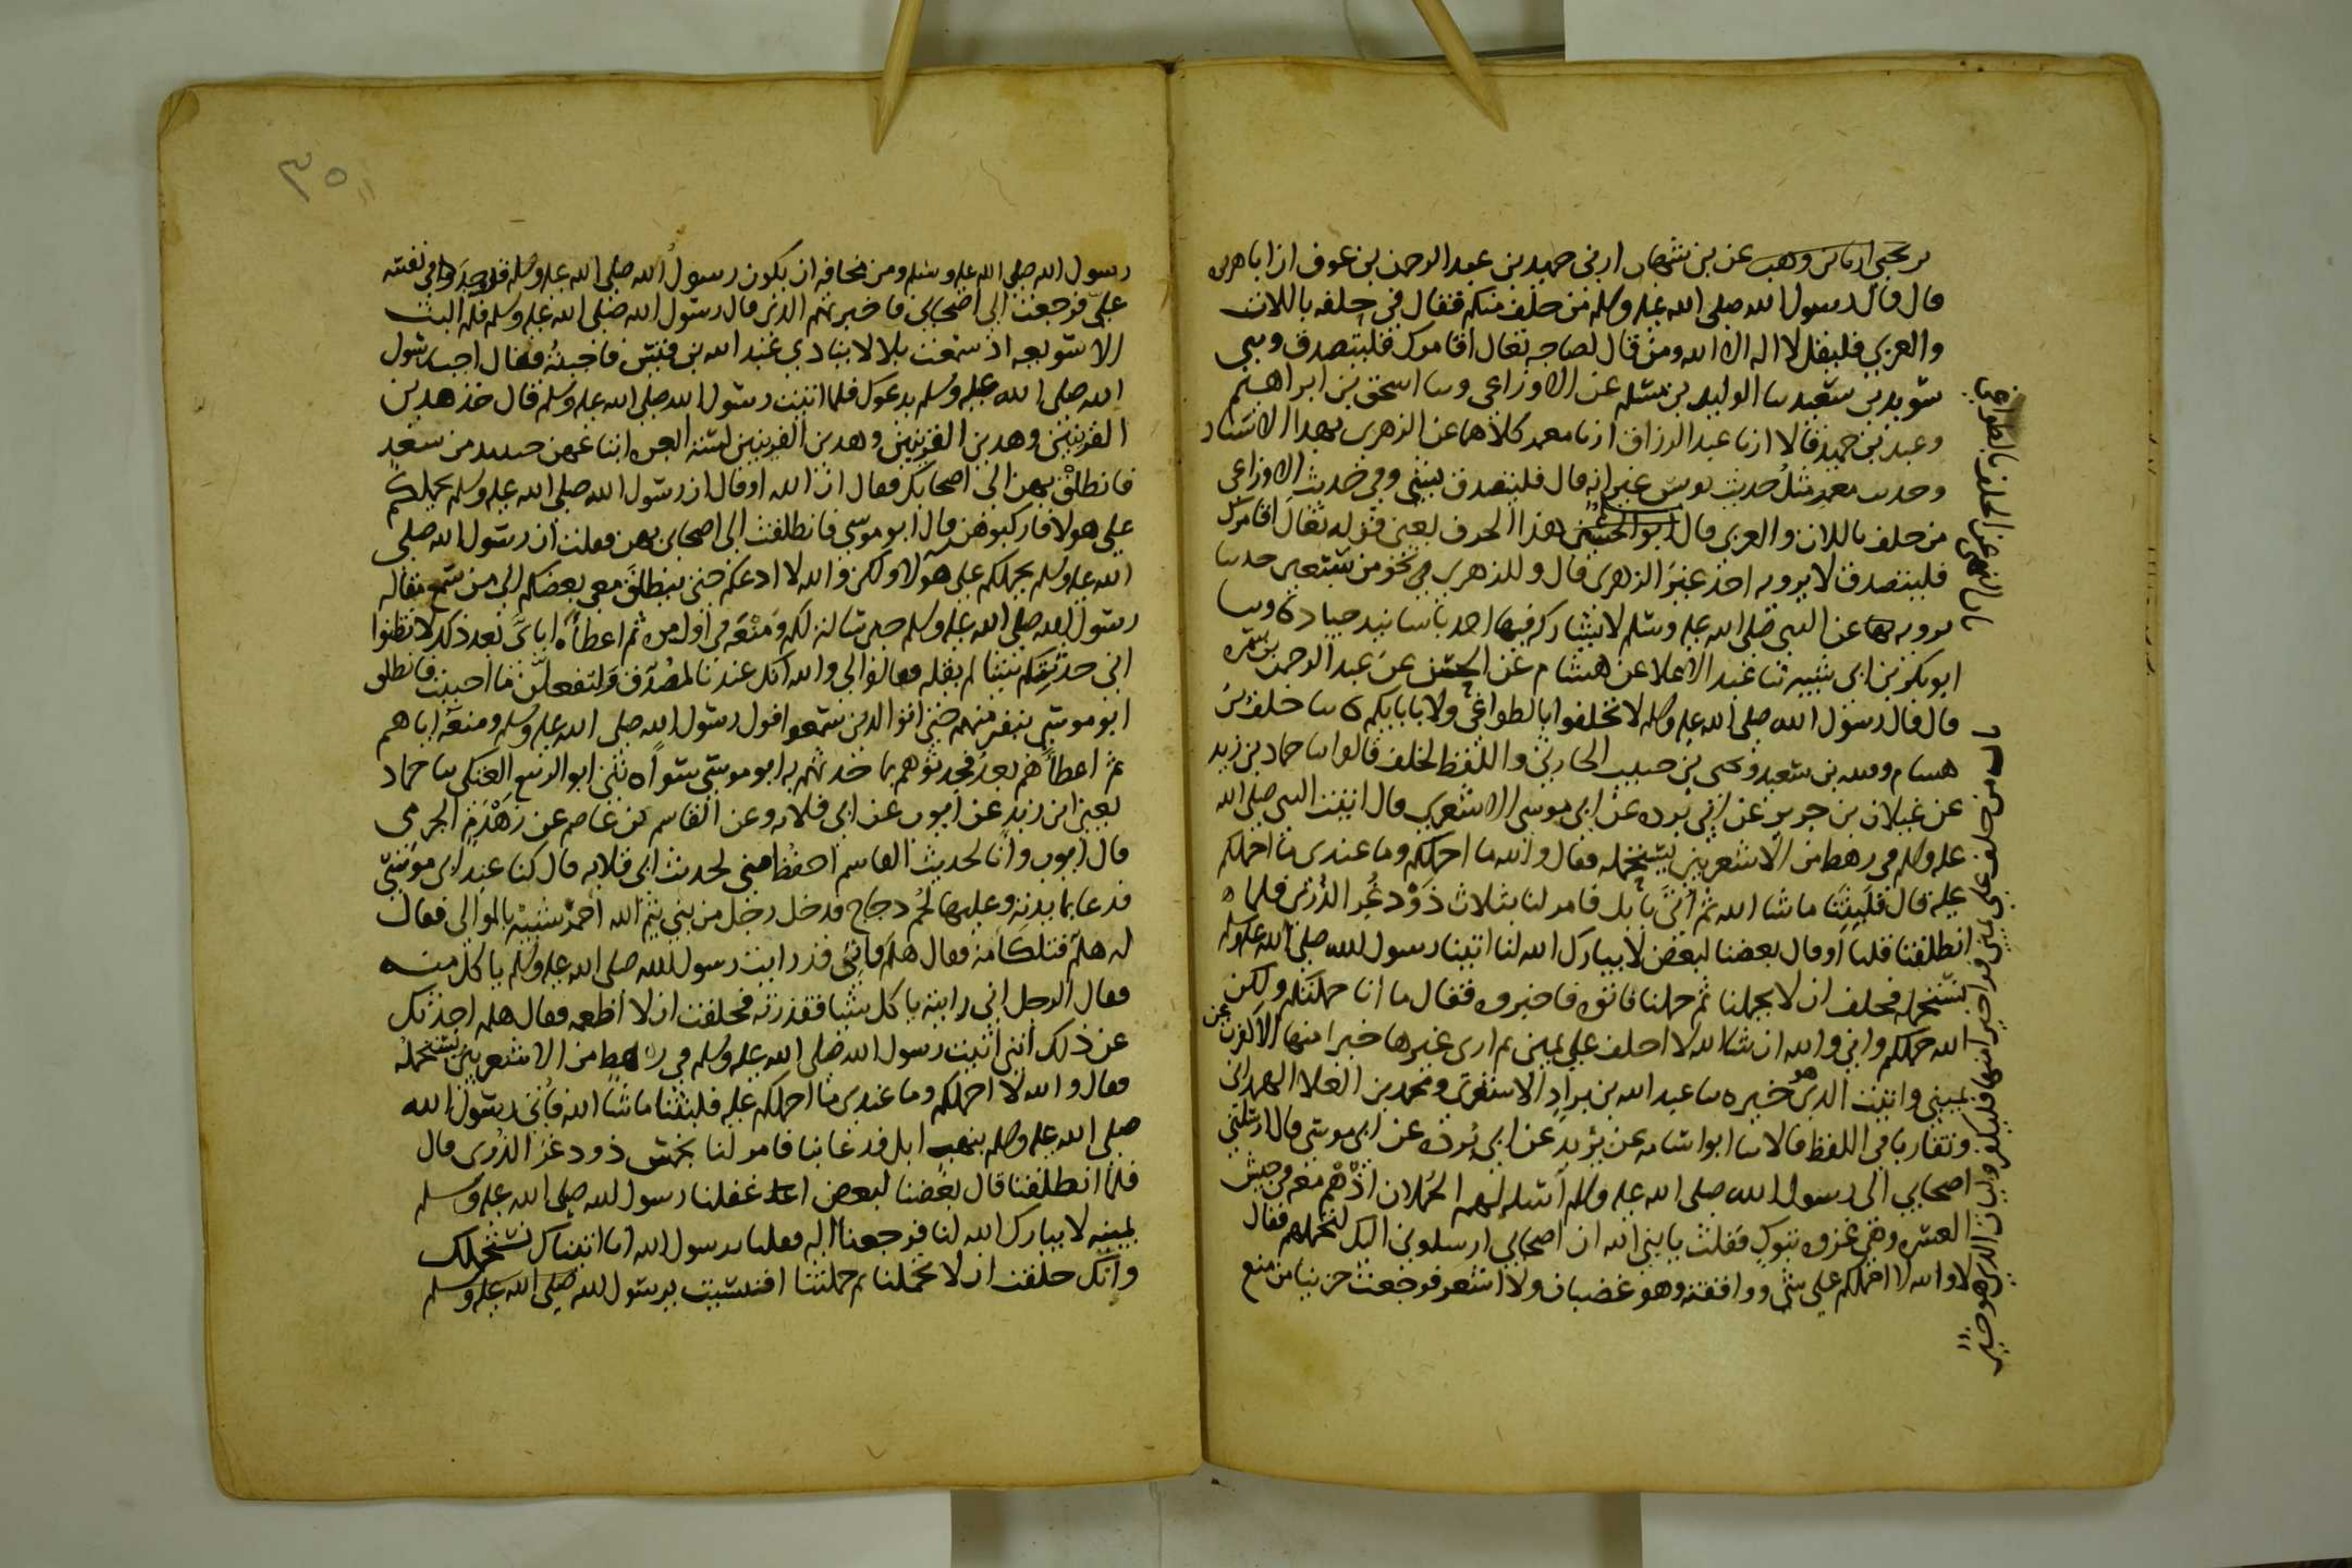 بن يحيى انا بن وهب عن بن شهاب ارنى حميد بن عبد الرحمن بن عوف ان ابا هريره
قال قال رسول الله صلى الله عليه وسلم من حلف منكم فقال في حلفه باللات
والعزى فليقل لا اله الا الله ومن قال لصاحبه تعال اقامرك فليتصدق وسى
سويد بن سعيد سا الوليد بن مسلم عن الاوزاعي وسا اسحق بن ابراهيم
وعبد بن حميد قالا انا عبد الرزاق انا معمر كلاهما عن الزهري بهذا الاسناد
وحدىث معمر مثل حديث يونس غير انه قال فليتصدق بشي وفي حديث الاوزاعي
من حلف باللات والعزى قال ابو الحسين هذا الحرف يعني قوله تعال اقامرك
فليتصدق لا يرويه احد غير الزهري قال وللزهري في نحو من تسعين حدىثا
يرويه عن النبي صلى الله عليه وسلم لا يشاركه فيها احد باسانيد جياد وسا
ابو بكر بن ابي شيبه ثنا عبد الاعلا عن هشام عن الحسن عن عبد الرحمن بن سمره
قال قال رسول الله صلى الله عليه وسلم لا تحلفوا بالطواغي ولا بابايكم سا خلف بن
هسام وقتيبه بن سعيد ويحيى بن حبيب الحارثي واللفظ لخلف قالوا سا حماد بن زيد
عن غيلان بن جرير عن ابي برده عن ابي موسى الاشعري قال اتيت النبي صلى الله
عليه وسلم في رهط من الاشعريين نستحمله فقال والله ما احملكم وما عندي ما احملكم
عليه قال فلبثنا ما شا الله ثم أتي بابل فامر لنا بثلاث ذَوْد غُر الذرى فلما
انطلقنا قلنا أو قال بعضنا لبعض لا يبارك الله لنا اتينا رسول الله صلى الله عليه وسلم
نستحمله فحلف ان لا يحملنا ثم حملنا فاتوه فاخبروه فقال ما انا حملتكم ولكن
الله حملكم واني والله ان شا الله لا احلف على يمين ثم ارى غيرها خيرا منها الا كفرت عن
يميني واتيت الذي هو خير سا عبد الله بن براد الاشعري ومحمد بن العلا الهمداني
وتقاربا في اللفظ قالا سا ابو اسامه عن بُريد عن ابي بُرده عن ابي موسى قال ارسلني
اصحابي الى رسول الله صلى الله عليه وسلم أسله لهم الحُملان اذ هُم معه في جيش
العسره وهي غزوه تبوك فقلت يا نبي الله ان اصحابي ارسلوني اليك لتحملهم فقال
لا والله لا احملكم على شي ووافقته وهو غضبان ولا اشعر فرجعت حزينا من منع
باب النهي عن الحلف بالطواغي
باب من حلف على يمين فراى خيرا منها فليكفر وليات الذي هو خير
٣٥
رسول الله صلى الله عليه وسلم ومن مخافه ان يكون رسول الله صلى الله عليه وسلم قد وجد في نفسه
علي فرجعت الى اصحابي فاخبرتهم الذي قال رسول الله صلى الله عليه وسلم فلم البث
الا سويعه اذ سمعت بلالا ينادي عبد الله بن قيس فاجبته فقال اجب رسول
الله صلى الله عليه وسلم يدعوك فلما اتيت رسول الله صلى الله عليه وسلم قال خذ هدين
القرينين وهدين القرينين وهدين القرينين لستة ابعره ابتاعهن حينيد من سعد
فانطلق بهن الى اصحابك فقال ان الله او قال ان رسول الله صلى الله عليه وسلم يحملكم
على هولا فاركبوهن قال ابو موسى فانطلقت الى اصحابي بهن فقلت ان رسول الله صلى
الله عليه وسلم يحملكم على هولا ولكن والله لا ادعكم حتى ينطلق معي بعضكم الى من سمع مقاله
رسول الله صلى الله عليه وسلم حين سالته لكم ومَنْعَه في أول مره ثم اعطاه اياي بعد ذلك لا تظنوا
اني حدثتكم شيئا لم يقله فقالوا لي والله انك عندنا لمُصدَّق ولنفعلنّ ما أحببت فانطلق
ابو موسى بنفر منهم حتى اتوا الذين سمعوا قول رسول الله صلى الله عليه وسلم ومنعه اياهم
ثم اعطاهم بعدُ فحدثوهم بما حدثهم به ابو موسى سواً ثنى ابو الربيع العتكي سا حماد
يعني ابن زيد عن ايوب عن ابي قلابه وعن القاسم بن عاصم عن زَهْدَم الجرمي
قال ايوب وأنا لحديث القاسم احفظ مني لحديث ابي قلابه قال كنا عند ابي موسى
فدعا بمايدته وعليها لحمُ دجاج فدخل رجل من بني تيم الله أحمر شبيه بالموالي فقال
له هلم فتلكأ فقال هلم فاني قد رايت رسول الله صلى الله عليه وسلم ياكل منه
فقال الرجل اني رايته ياكل شيئا فقذرته فحلفت ان لا أطعمه فقال هلم احدثك
عن ذلك انى اتيت رسول الله صلى الله عليه وسلم في رهط من الاشعريين نستحمله
فقال والله لا احملكم وما عندي ما احملكم عليه فلبثنا ما شا الله فأتي رسول الله
صلى الله عليه وسلم بنهب ابل فدعا بنا فامر لنا بخمس ذود غُر الذرى قال
فلما انطلقنا قال بعضنا لبعض اغفلنا رسول الله صلى الله عليه وسلم
يمينه لا يبارك الله لنا فرجعنا اليه فقلنا يرسول الله انا اتيناك نستحملك
وانك حلفت ان لا تحملنا ثم حملتنا افنسيت يرسول الله صلى الله عليه وسلم